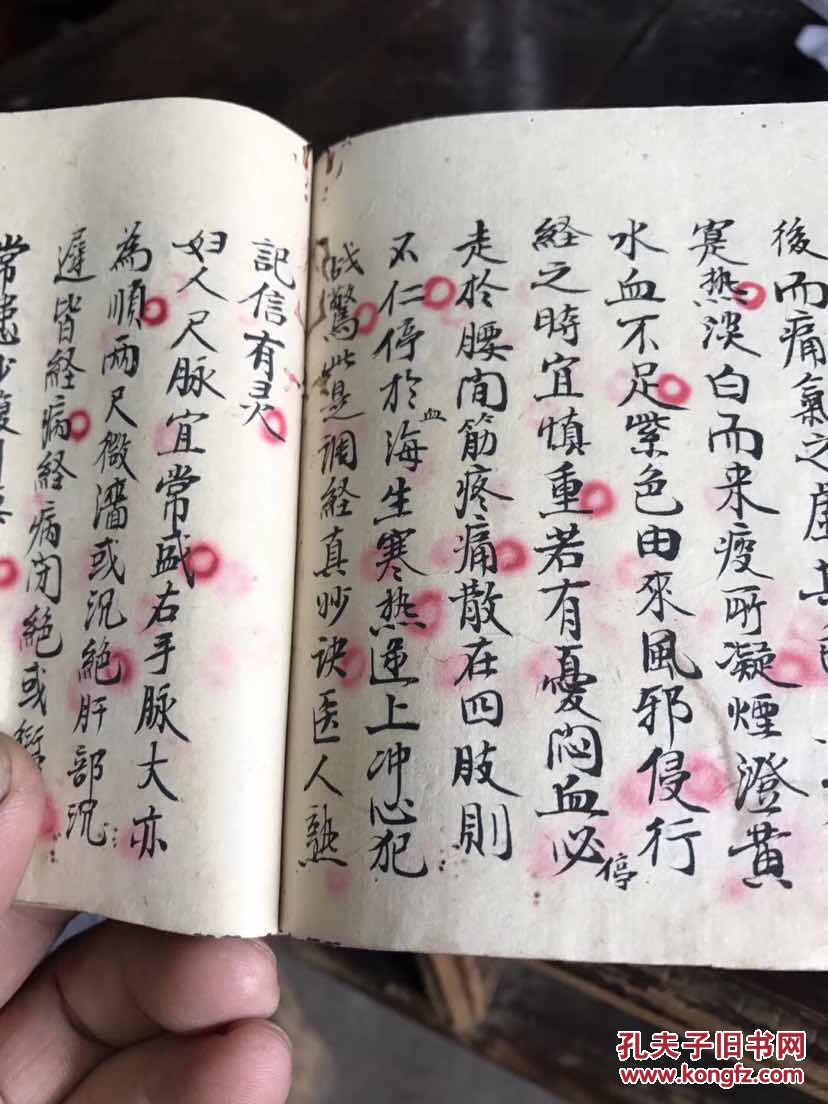 後而痛氣之虛其
寔热淡白而来痰所凝烟澄黄
水血不足紫色由來風邪侵行
経之時宜慎重若有憂悶血必停
走於腰间筋疼痛散在四肢則
不仁停於血海生寒热逆上冲心犯
战驚此是調経真妙诀医人熟
記信有灵
妇人尺脉宜常盛右手脉大亦
為順两尺微濇或沉絶肝部沉
遲皆経病経病闭絶或
常患少腹
孔夫子旧书网
www.kongfz.com